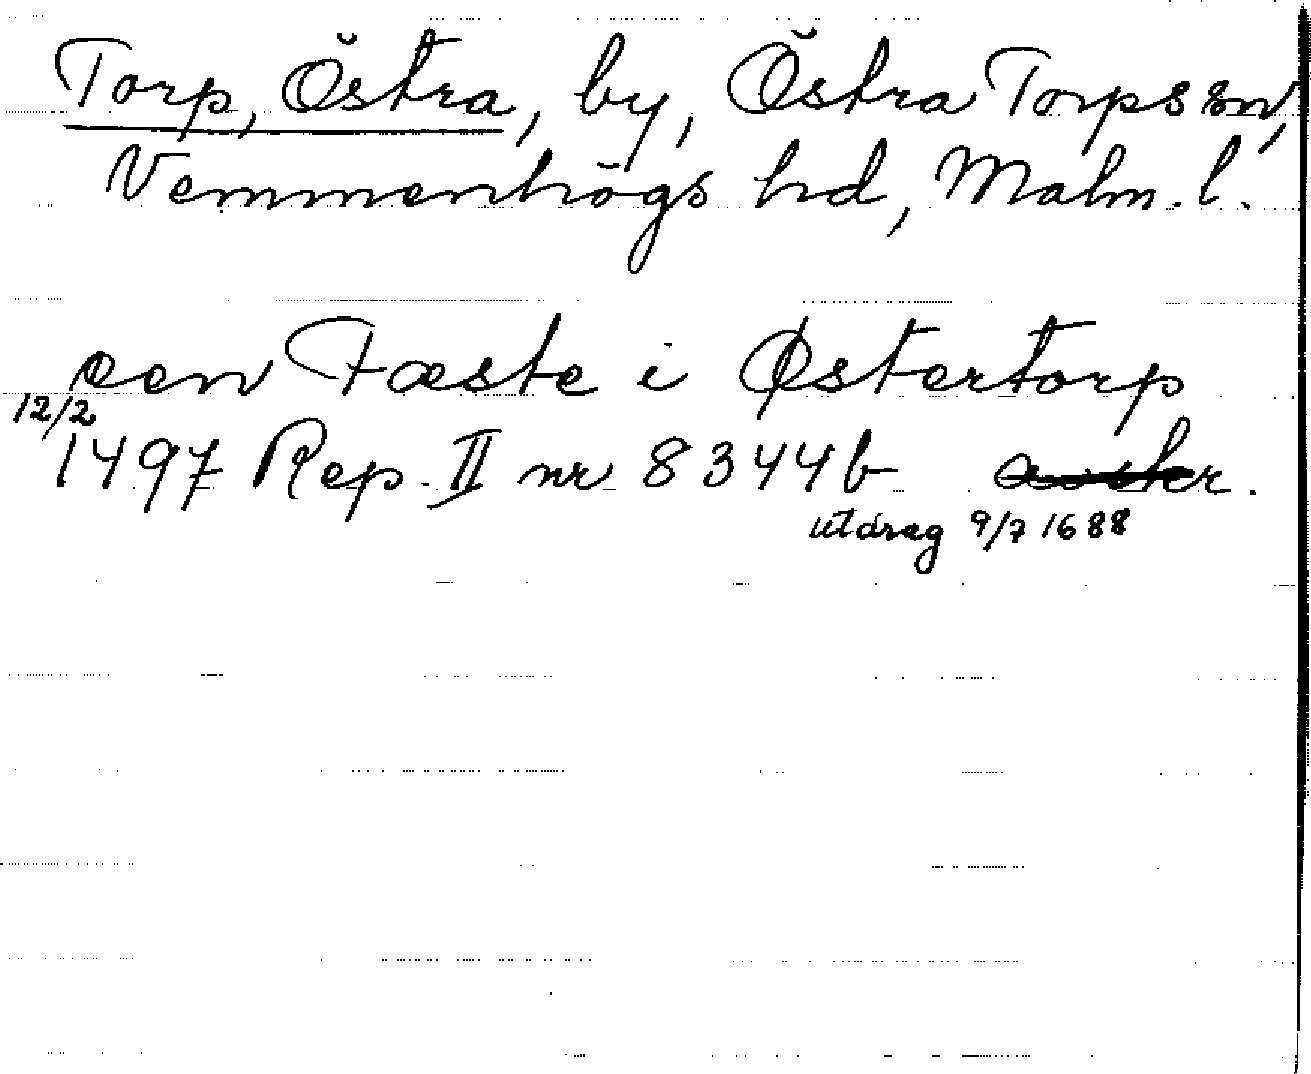 Torp, Östra, by, Östra Torps sn,
Vemmenhögs hd, Malm. l.
een Fæste i Østertorp
12/2
1497 Rep. II nr 8344b avskr.
utdrag 9/7 1688